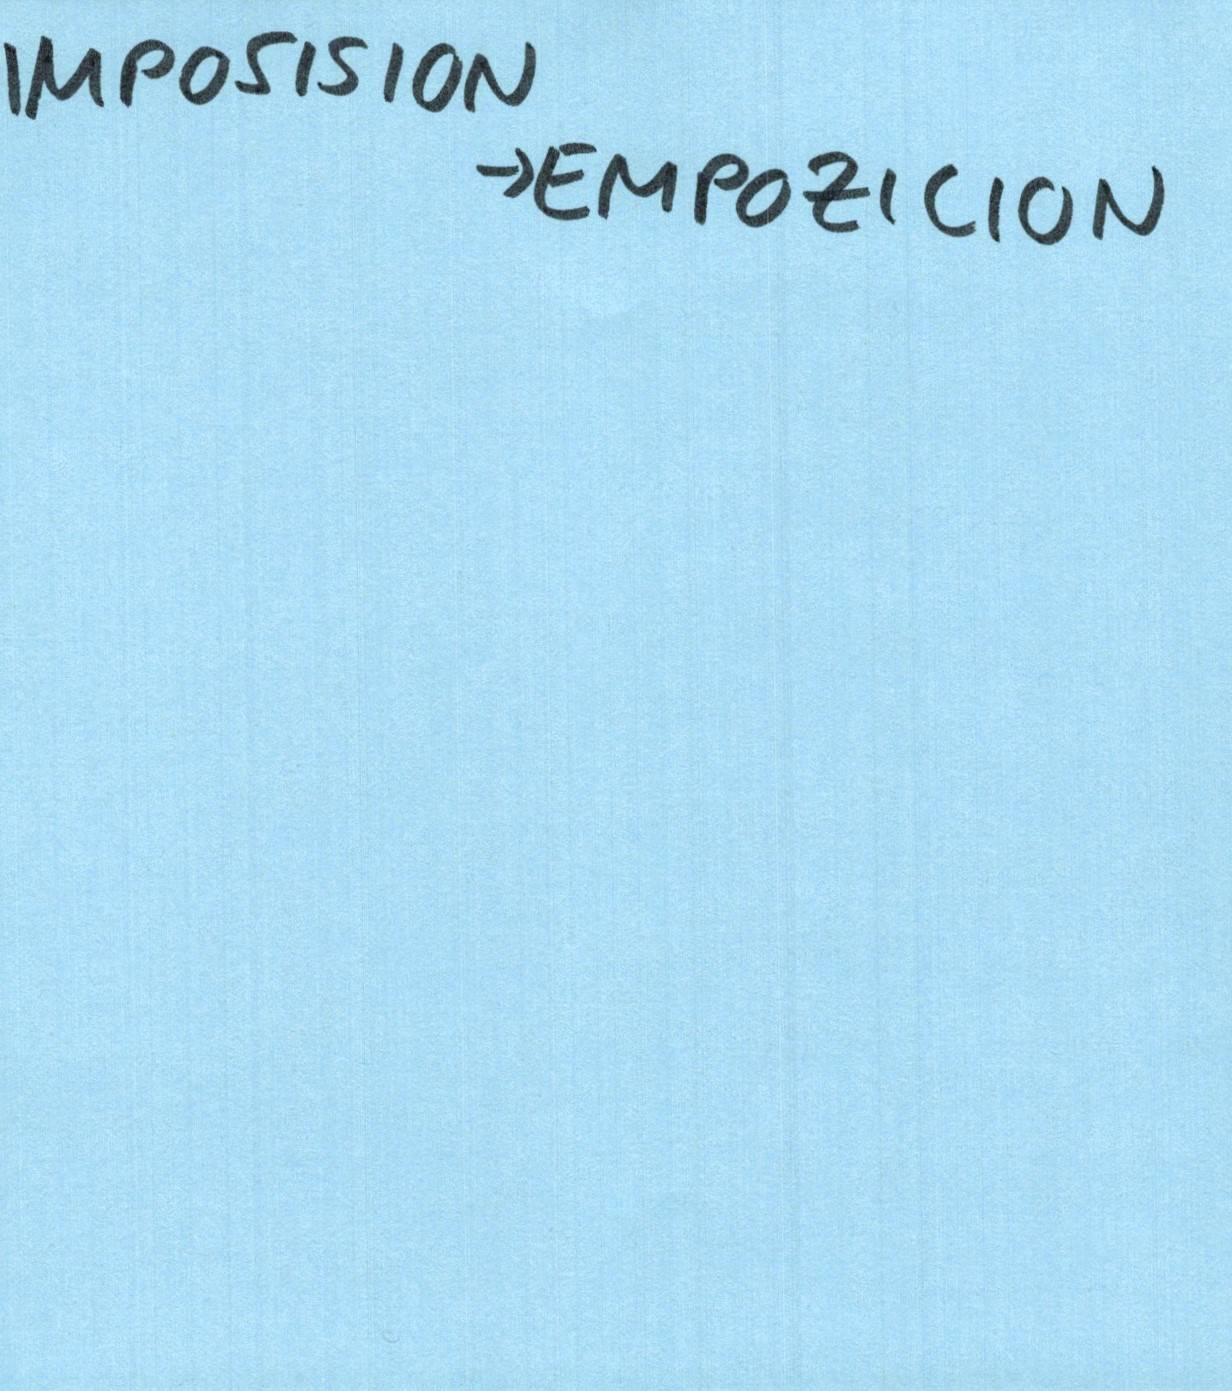 IMPOSISION
→EMPOZICION